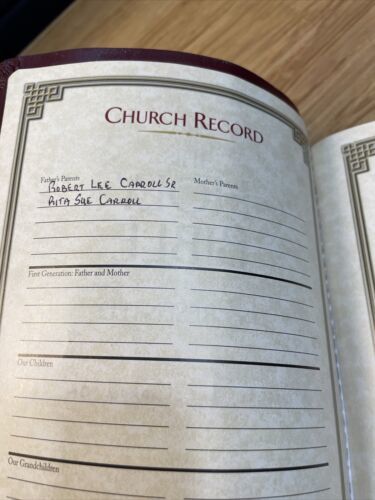 CHURCH RECORD
Father's Parents
Mother's Parents
ROBERT LEE CARROLL SR
RITA SUE CARROLL
First Generation: Father and Mother
Our Children
Our Grandchildren